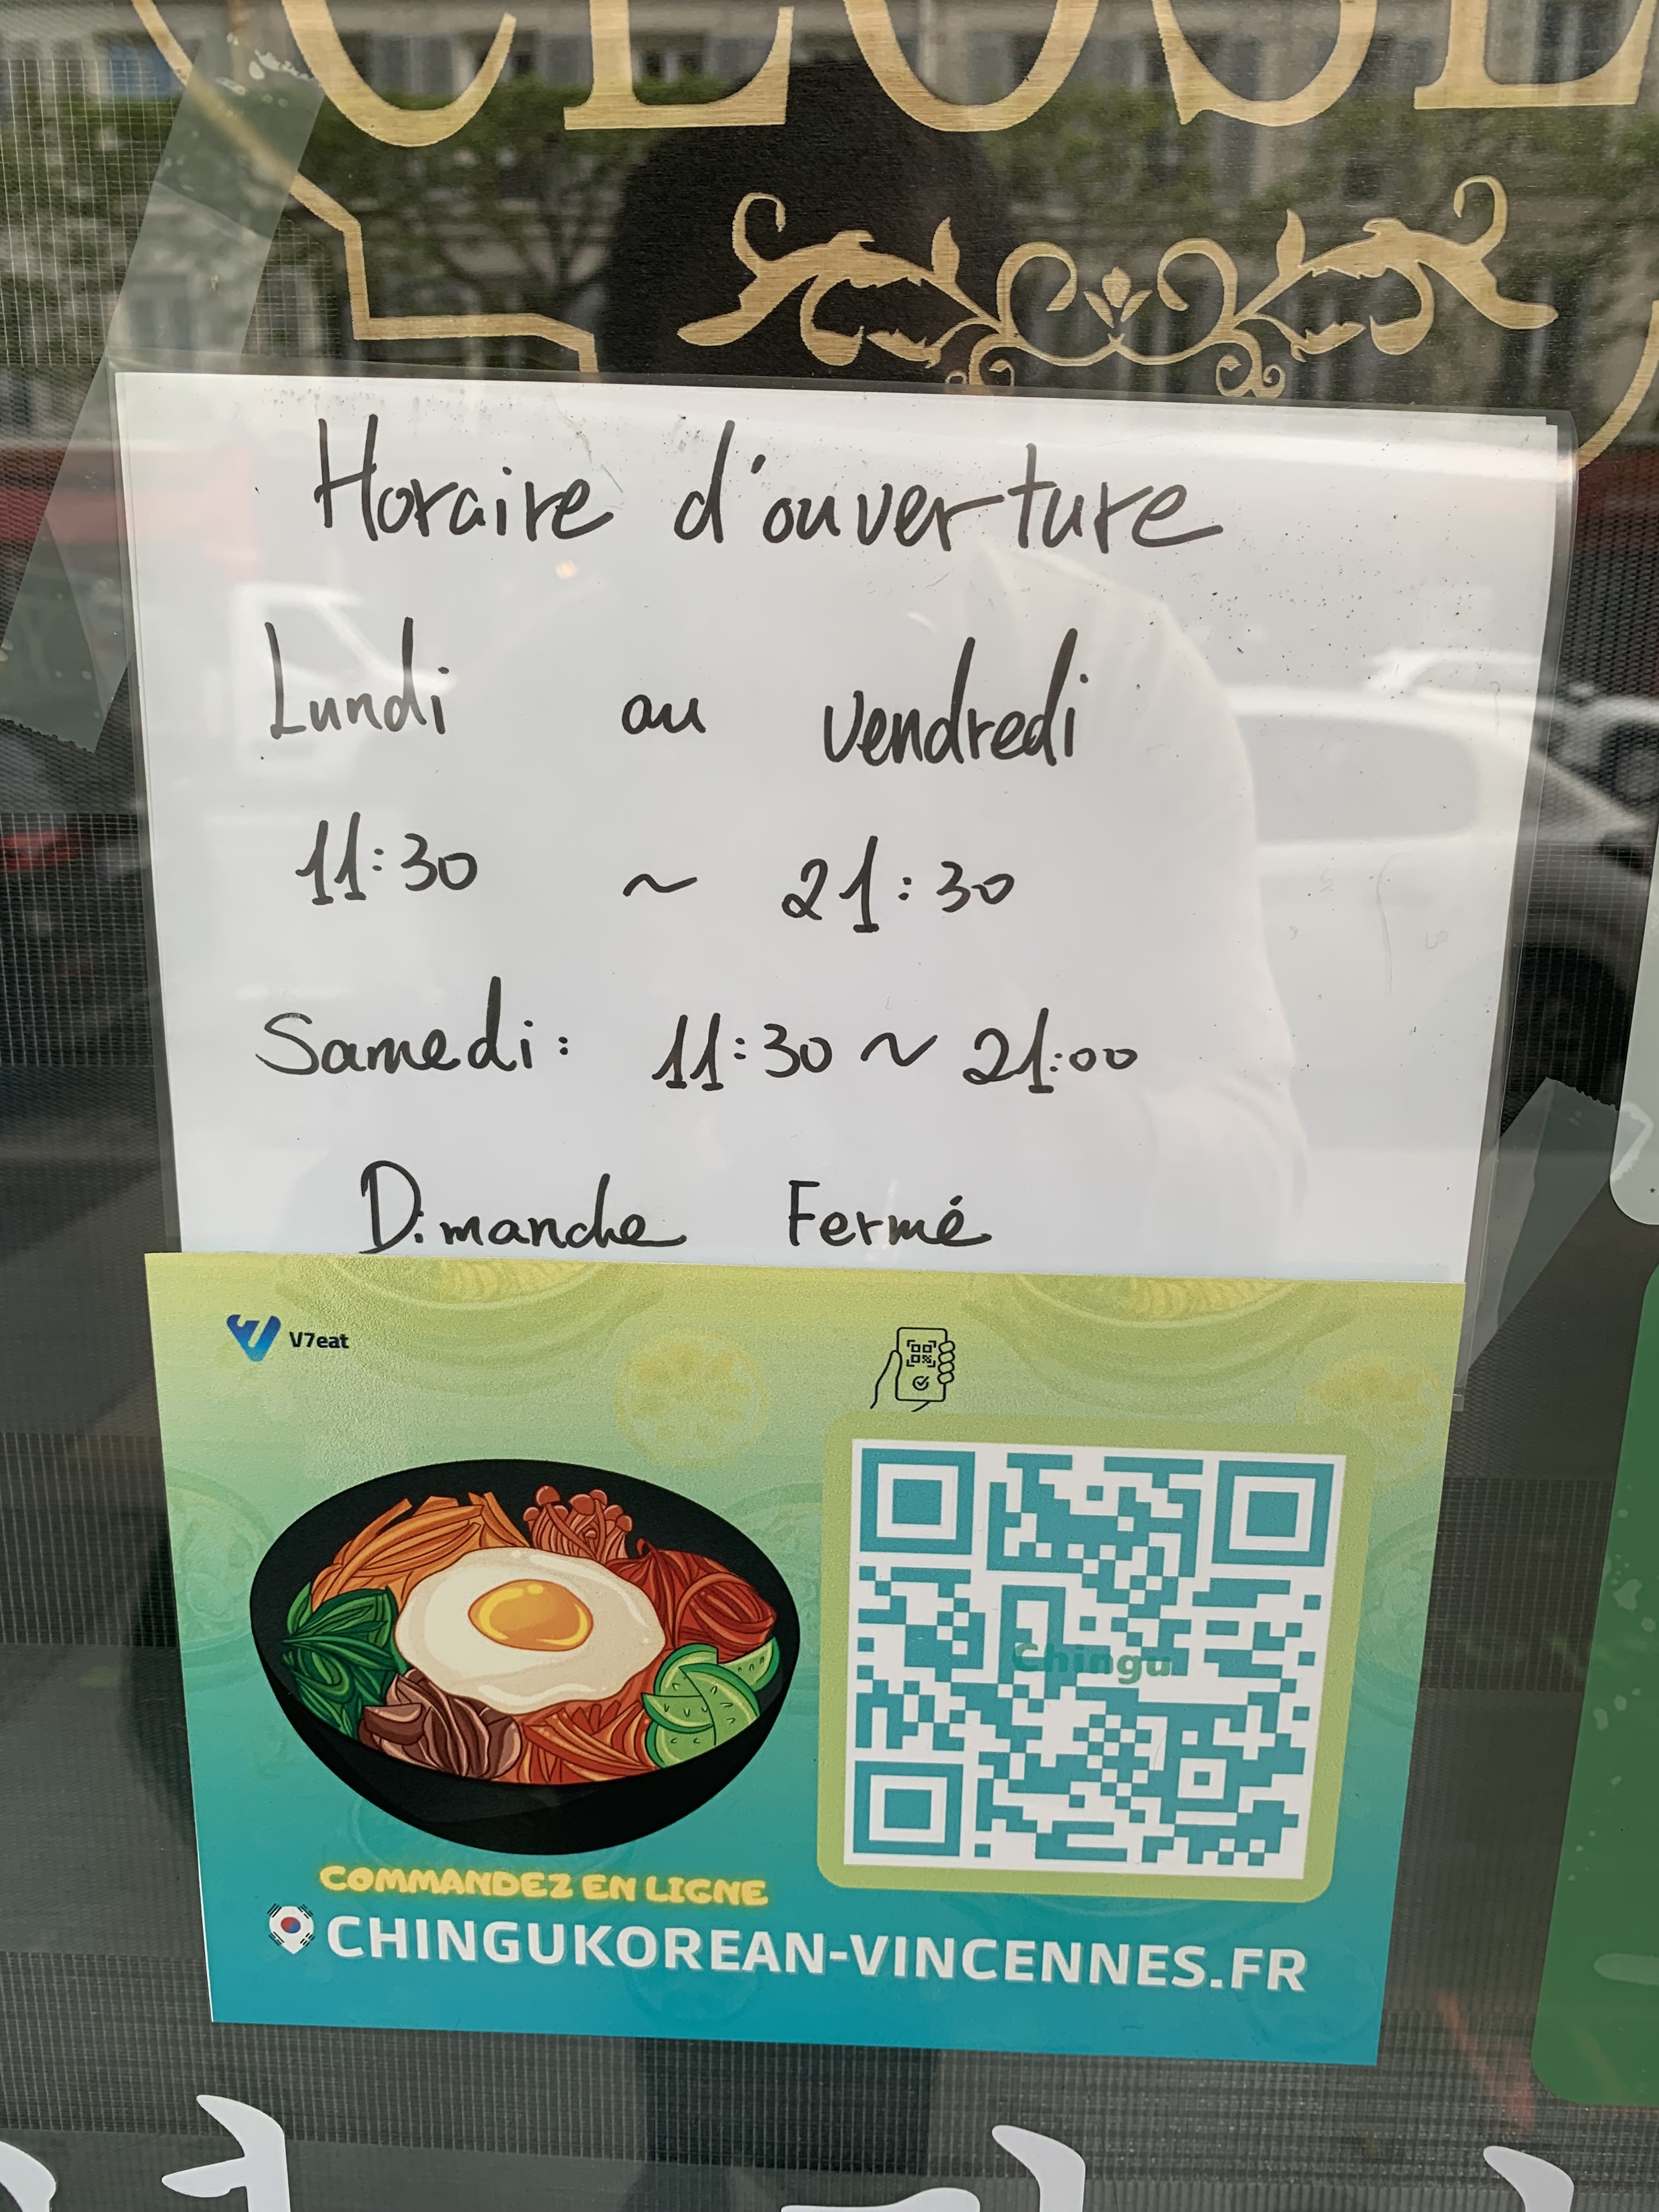 CLOSE
Horaire d'ouverture
Lundi au vendredi
11:30 ~ 21:30
Samedi: 11:30 ~ 21:00
Dimanche Fermé
V7eat
Chingu
COMMANDEZ EN LIGNE
CHINGUKOREAN-VINCENNES.FR